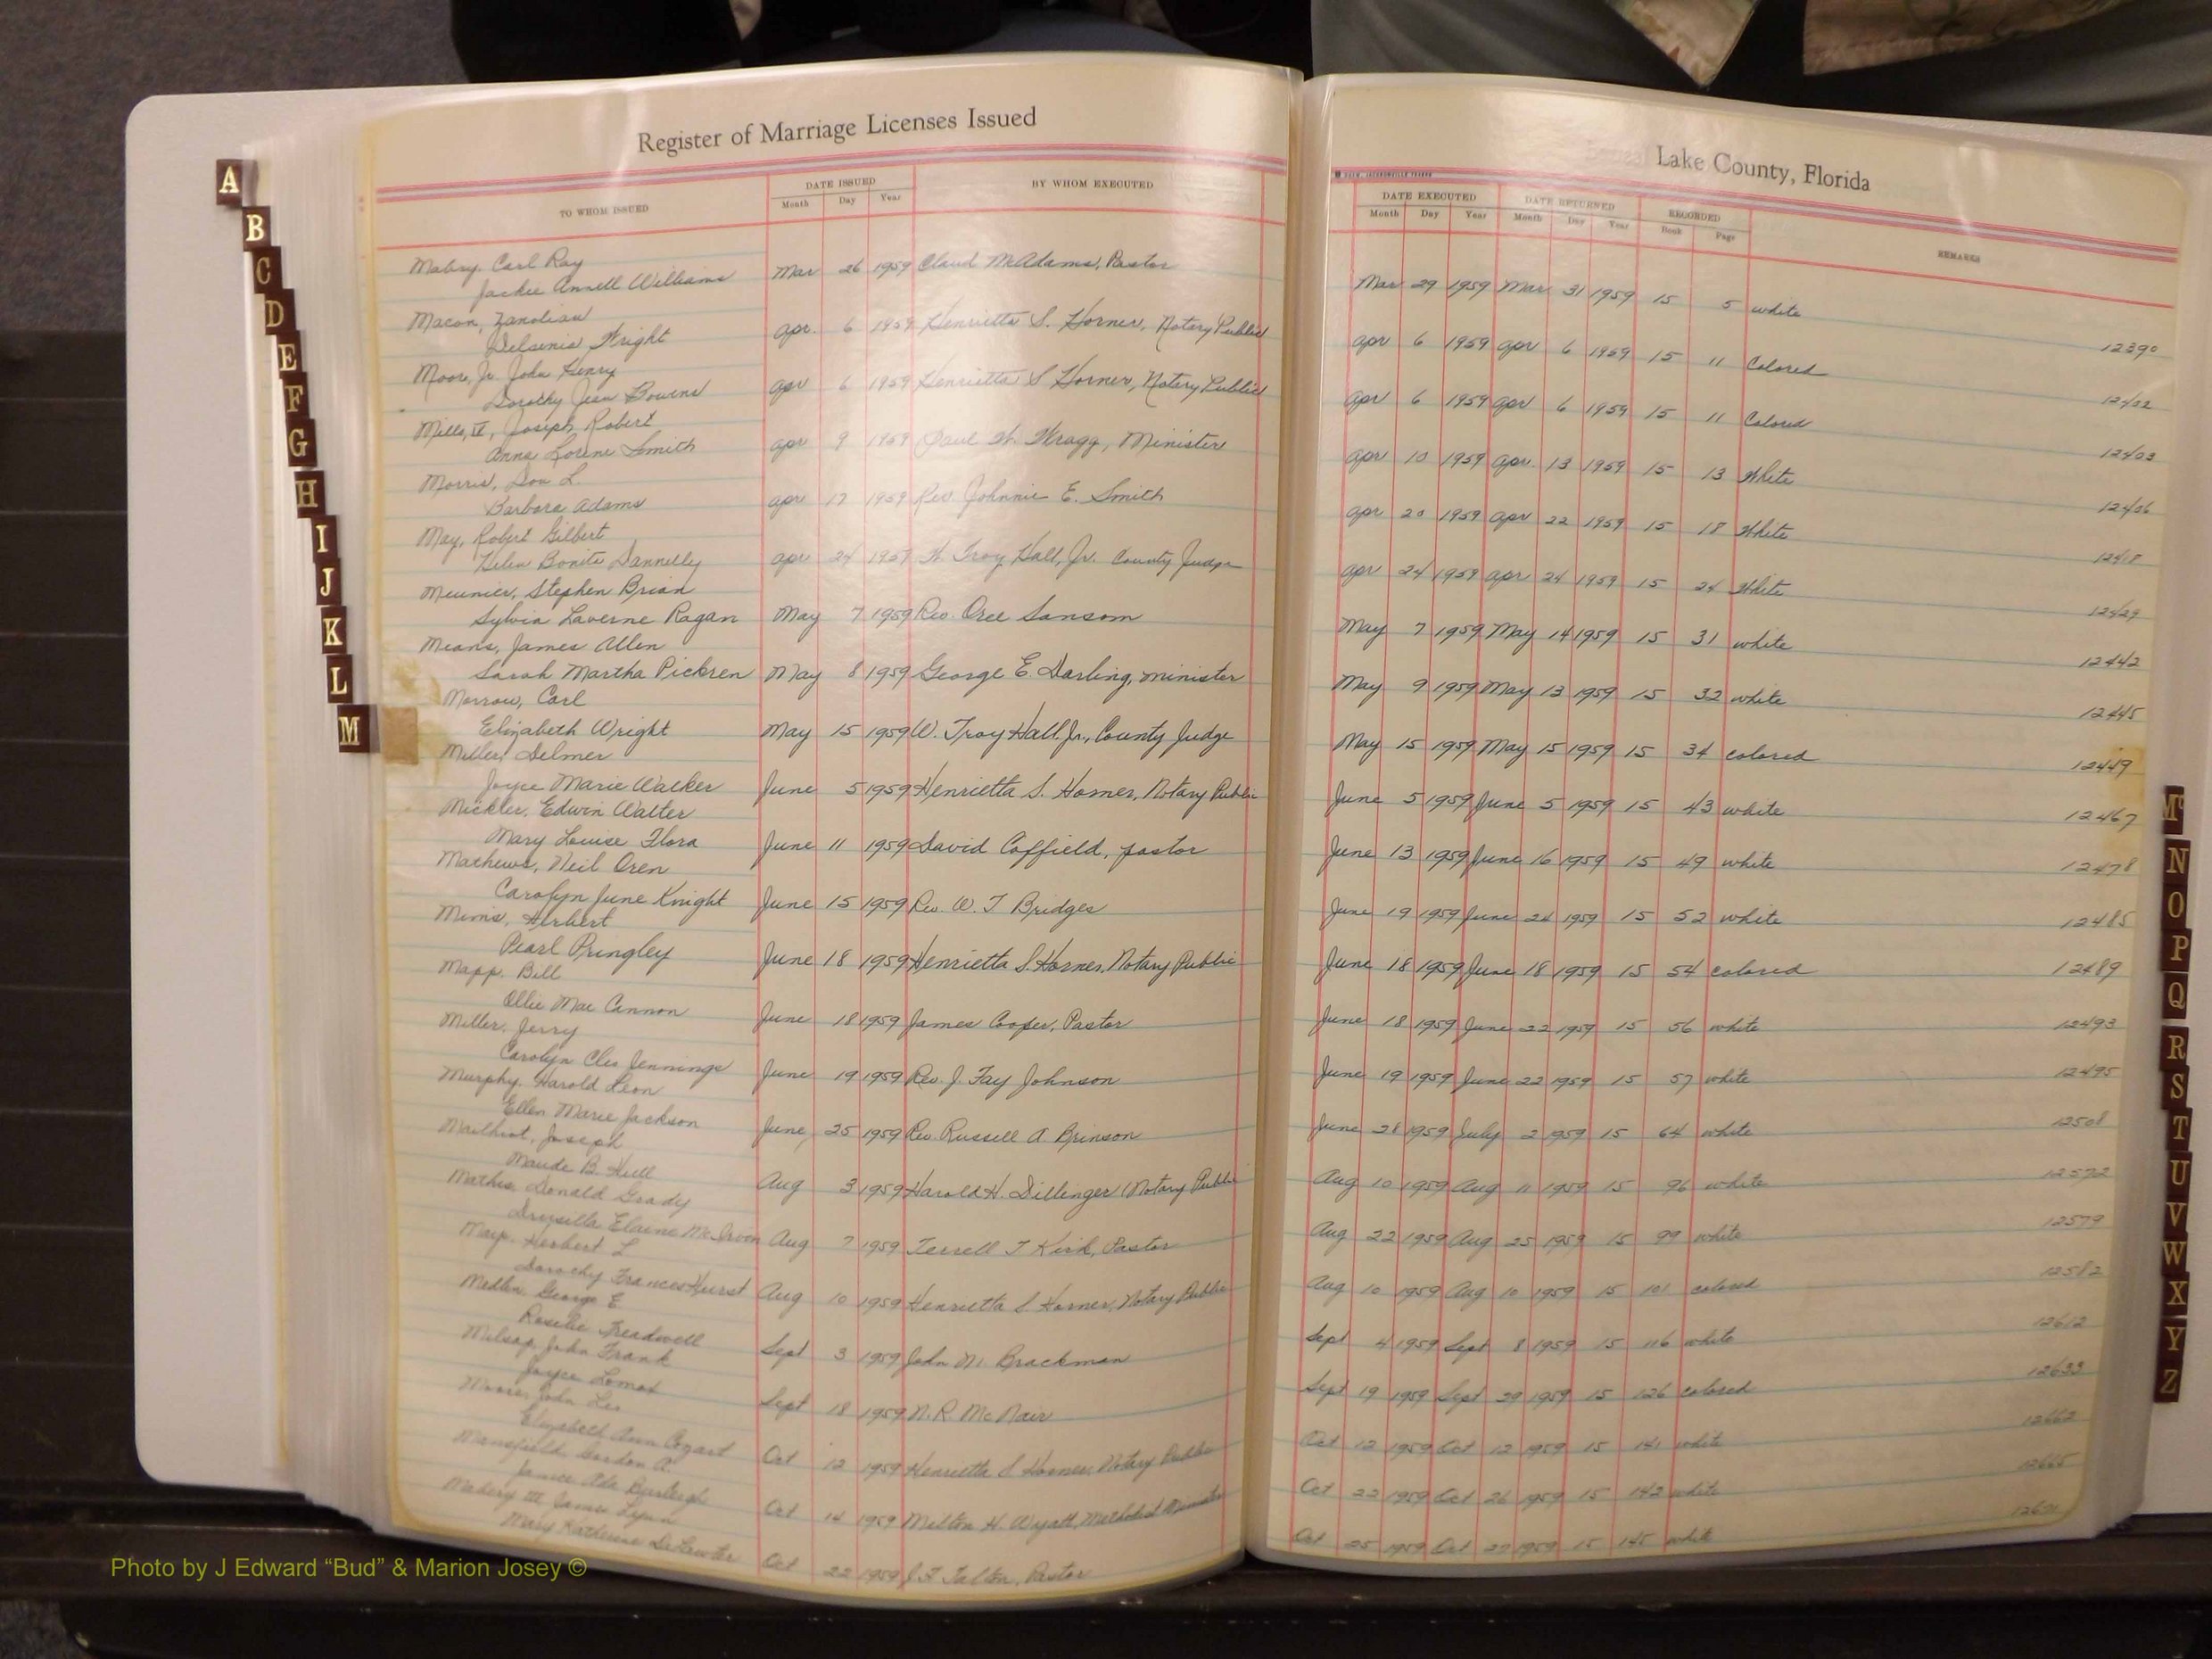 Register of Marriage Licenses Issued
Lake County, Florida
TO WHOM ISSUED
DATE ISSUED
Month Day Year
BY WHOM EXECUTED
DATE EXECUTED
Month Day Year
DATE RETURNED
Month Day Year
RECORDED
Book Page
REMARKS
Mabry, Carl Ray
Jackie Annell Williams Mar 26 1959 Claud McAdams, Pastor Mar 29 1959 Mar 31 1959 15 5 white 12390
Macon,
Wright Apr. 6 1959 Henrietta S. Horner, Notary Public Apr 6 1959 Apr 6 1959 15 11 Colored 12402
Moore, Jr. John Henry
Dorothy Jean Bowens Apr 6 1959 Henrietta S Horner, Notary Public Apr 6 1959 Apr 6 1959 15 11 Colored 12403
Mills, Joseph Robert
Anna Lorene Smith Apr 9 1959 Paul H. Wragg, Minister Apr 10 1959 Apr. 13 1959 15 13 White 12406
Morris, Don L.
Barbara Adams Apr 17 1959 Rev. Johnnie E. Smith Apr 20 1959 Apr 22 1959 15 18 White 12418
May, Robert Gilbert
Helen Bonita Dannelly Apr 24 1959 W. Troy Hall, Jr. County Judge Apr 24 1959 Apr 24 1959 15 24 White 12429
Meunier, Stephen Brian
Sylvia Laverne Ragan May 7 1959 Rev. Oree Sansom May 7 1959 May 14 1959 15 31 white 12442
Means, James Allen
Sarah Martha Pickren May 8 1959 George E. Darling, minister May 9 1959 May 13 1959 15 32 white 12445
Morrow, Carl
Elizabeth Wright May 15 1959 W. Troy Hall, Jr., County Judge May 15 1959 May 15 1959 15 34 colored 12449
Miller, Delmer
Joyce Marie Walker June 5 1959 Henrietta S. Horner, Notary Public June 5 1959 June 5 1959 15 43 white 12467
Mickler, Edwin Walter
Mary Louise Flora June 11 1959 David Coffield, pastor June 13 1959 June 16 1959 15 49 white 12478
Mathews, Neil Oren
Carolyn June Knight June 15 1959 Rev. W. T Bridges June 19 1959 June 24 1959 15 52 white 12485
Mims, Herbert
Pearl Pringley June 18 1959 Henrietta S. Horner, Notary Public June 18 1959 June 18 1959 15 54 colored 12489
Mapp, Bill
Ollie Mae Cannon June 18 1959 James Cooper, Pastor June 18 1959 June 22 1959 15 56 white 12493
Miller, Jerry
Carolyn Cleo Jennings June 19 1959 Rev. J. Fay Johnson June 19 1959 June 22 1959 15 57 white 12495
Murphy, Harold Leon
Ellen Marie Jackson June 25 1959 Rev. Russell A Brinson June 28 1959 July 2 1959 15 64 white 12508
Mailhiot, Joseph
Maude B. Hull Aug 3 1959 Harold H. Dillinger (Notary Public Aug 10 1959 Aug 11 1959 15 96 white 12572
Mathis, Donald Grady
Drusilla Elaine Aug 7 1959 Terrell T Kirk, Pastor Aug 22 1959 Aug 25 1959 15 99 white 12579
Mays, Herbert L
Dorothy Frances Hurst Aug 10 1959 Henrietta S Horner, Notary Public Aug 10 1959 Aug 10 1959 15 101 colored 12582
Medlin, George E
Rosilie Treadwell Sept 3 1959 John M. Brackman Sept 4 1959 Sept 8 1959 15 116 white 12612
Milsap, John Frank
Joyce Lomax Sept 18 1959 N. R. McNair Sept 19 1959 Sept 29 1959 15 126 colored 12633
Moore, John Leo
Elizabeth Ann Cozart Oct 12 1959 Henrietta S Horner, Notary Public Oct 12 1959 Oct 12 1959 15 141 white 12662
Mansfield, Gordon A.
Janice Ada Burleigh Oct 14 1959 Milton H. Wyatt, Methodist Minister Oct 22 1959 Oct 26 1959 15 142 white 12665
III James Lynn
Mary Katherine Oct 22 1959 J. F. Pastor Oct 25 1959 Oct 27 1959 15 145 white
A
B
C
D
E
F
G
H
I
J
K
L
M
Mc
N
O
P
Q
R
S
T
U
V
W
X
Y
Z
Photo by J Edward “Bud” & Marion Josey ©